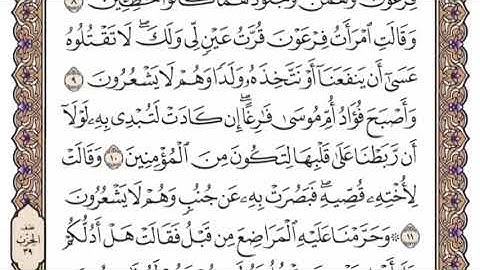 فِرْعَوْنَ وَهَٰمَٰنَ وَجُنُودَهُمَا كَانُوا۟ خَٰطِـِٔينَ ٨
وَقَالَتِ ٱمْرَأَتُ فِرْعَوْنَ قُرَّتُ عَيْنٍ لِّى وَلَكَ ۖ لَا تَقْتُلُوهُ
عَسَىٰٓ أَن يَنفَعَنَآ أَوْ نَتَّخِذَهُۥ وَلَدًا وَهُمْ لَا يَشْعُرُونَ ٩
وَأَصْبَحَ فُؤَادُ أُمِّ مُوسَىٰ فَٰرِغًا ۖ إِن كَادَتْ لَتُبْدِى بِهِۦ لَوْلَآ
أَن رَّبَطْنَا عَلَىٰ قَلْبِهَا لِتَكُونَ مِنَ ٱلْمُؤْمِنِينَ ١٠ وَقَالَتْ
لِأُخْتِهِۦ قُصِّيهِ ۖ فَبَصُرَتْ بِهِۦ عَن جُنُبٍ وَهُمْ لَا يَشْعُرُونَ
١١ ۞ وَحَرَّمْنَا عَلَيْهِ ٱلْمَرَاضِعَ مِن قَبْلُ فَقَالَتْ هَلْ أَدُلُّكُمْ
نصف
الحزب
٣٩